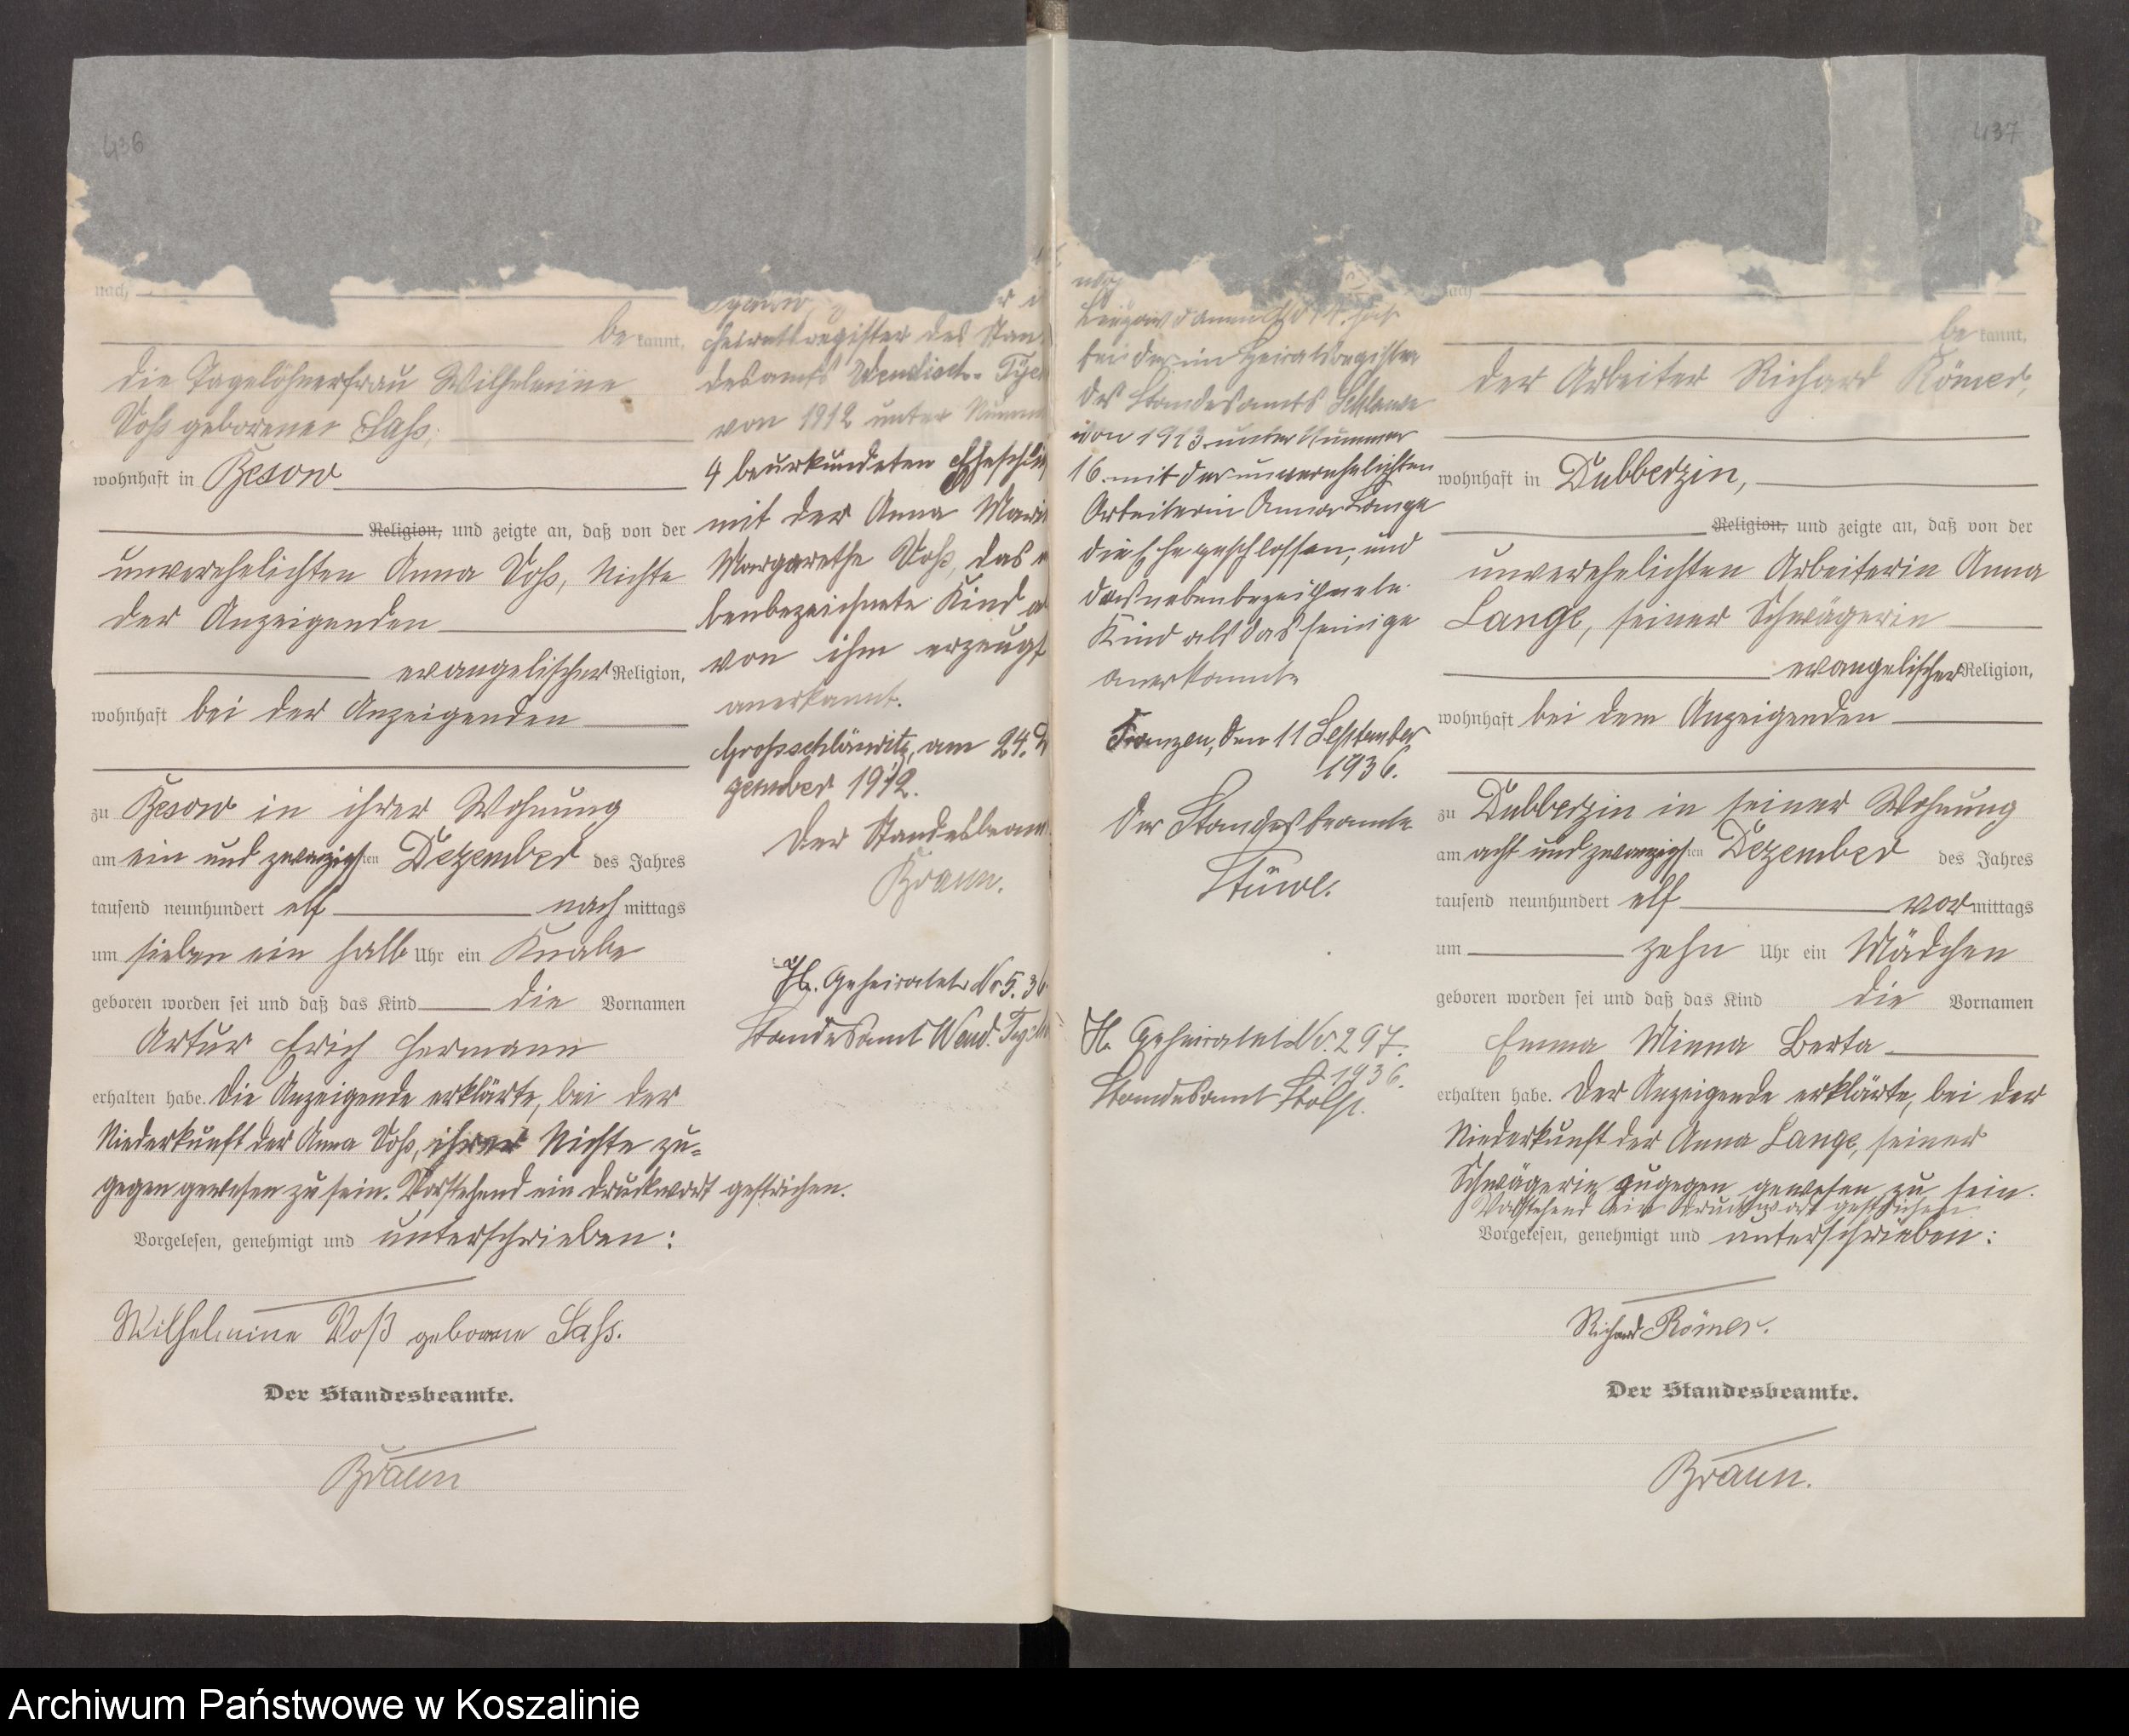 436
nach
be kannt,
die Tagelöhnerfrau Wilhelmine
Voß geborene Saß,
wohnhaft in Besow
Religion, und zeigte an, daß von der
unverehelichten Anna Voß, Nichte
der Anzeigenden
evangelischer Religion,
wohnhaft bei der Anzeigenden
zu Besow in ihrer Wohnung
am ein und zwanzigsten Dezember des Jahres
tausend neunhundert elf nach mittags
um sieben ein halb Uhr ein Knabe
geboren worden sei und daß das Kind die Vornamen
Artur Erich Hermann
erhalten habe. Die Anzeigende erklärte, bei der
Niederkunft der Anna Voß, ihrer Nichte zu-
gegen gewesen zu sein. Vorstehend ein Druckwort gestrichen.
Vorgelesen, genehmigt und unterschrieben:
Wilhelmine Voß geborne Saß.
Der Standesbeamte.
Braun
Heiratsregister des Stan
desamts Wendisch-Tyc
von 1912 unter Numm
4 beurkundeten Eheschließ
mit der Anna Marie
Margarethe Voß, das n
benbezeichnete Kind a
von ihm erzeugt
anerkannt.
Großschlönwitz, am 24. D
zember 1912.
Der Standesbeam
Braun.
H. Geheiratet Nr 5. 36
Standesamt Wend. Tych
437
bei der im Heiratsregister
des Standesamts Schlawe
von 1913 unter Nummer
16. mit der unverehelichten
Arbeiterin Anna Lange
die Ehe geschlossen, und
das nebenbezeichnete
Kind als das seinige
anerkannt.
Franzen, den 11 September
1936.
Der Standesbeamte
Stüwe.
H. Geheiratet Nr. 297.
1936.
Standesamt Stolp.
nach
be kannt,
der Arbeiter Richard Römer,
wohnhaft in Dubberzin,
Religion, und zeigte an, daß von der
unverehelichten Arbeiterin Anna
Lange, seiner Schwägerin
evangelischer Religion,
wohnhaft bei dem Anzeigenden
zu Dubberzin in seiner Wohnung
am acht und zwanzigsten Dezember des Jahres
tausend neunhundert elf vor mittags
um zehn Uhr ein Mädchen
geboren worden sei und daß das Kind die Vornamen
Emma Minna Berta
erhalten habe. Der Anzeigende erklärte, bei der
Niederkunft der Anna Lange, seiner
Schwägerin zugegen gewesen zu sein.
Vorstehend ein Druckwort gestrichen
Vorgelesen, genehmigt und unterschrieben:
Richard Römer.
Der Standesbeamte.
Braun.
Archiwum Państwowe w Koszalinie